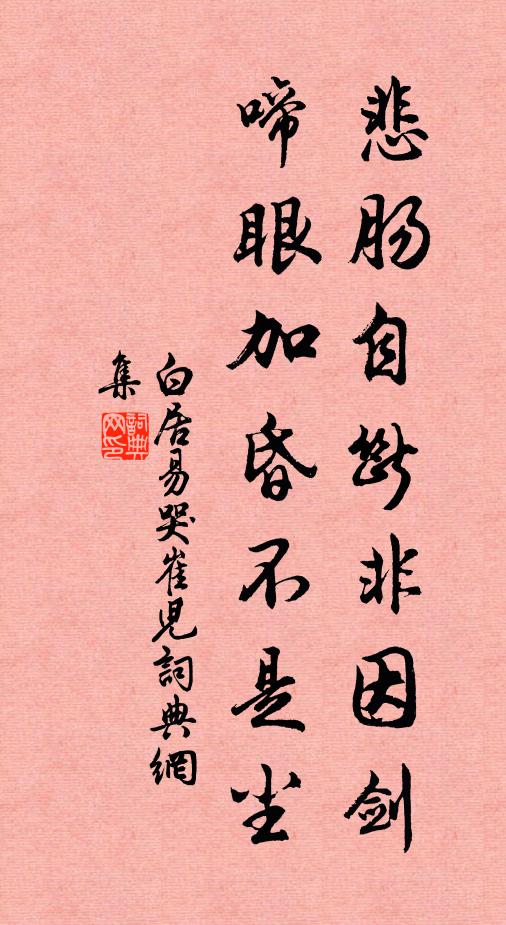 悲肠自断非因剑
啼眼加昏不是尘
白居易哭崔兒詞典網
集
詞典网印